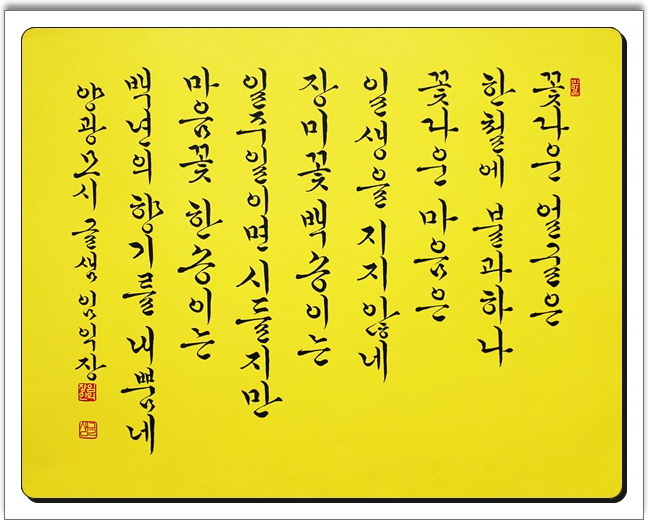 꽃다운 얼굴은
한철에 불과하나
꽃다운 마음은
일생을 지지 않네
장미꽃 백송이는
일주일이면 시들지만
마음꽃 한송이는
백년의 향기를 내뿜네
양광모 시 글샘 임익장